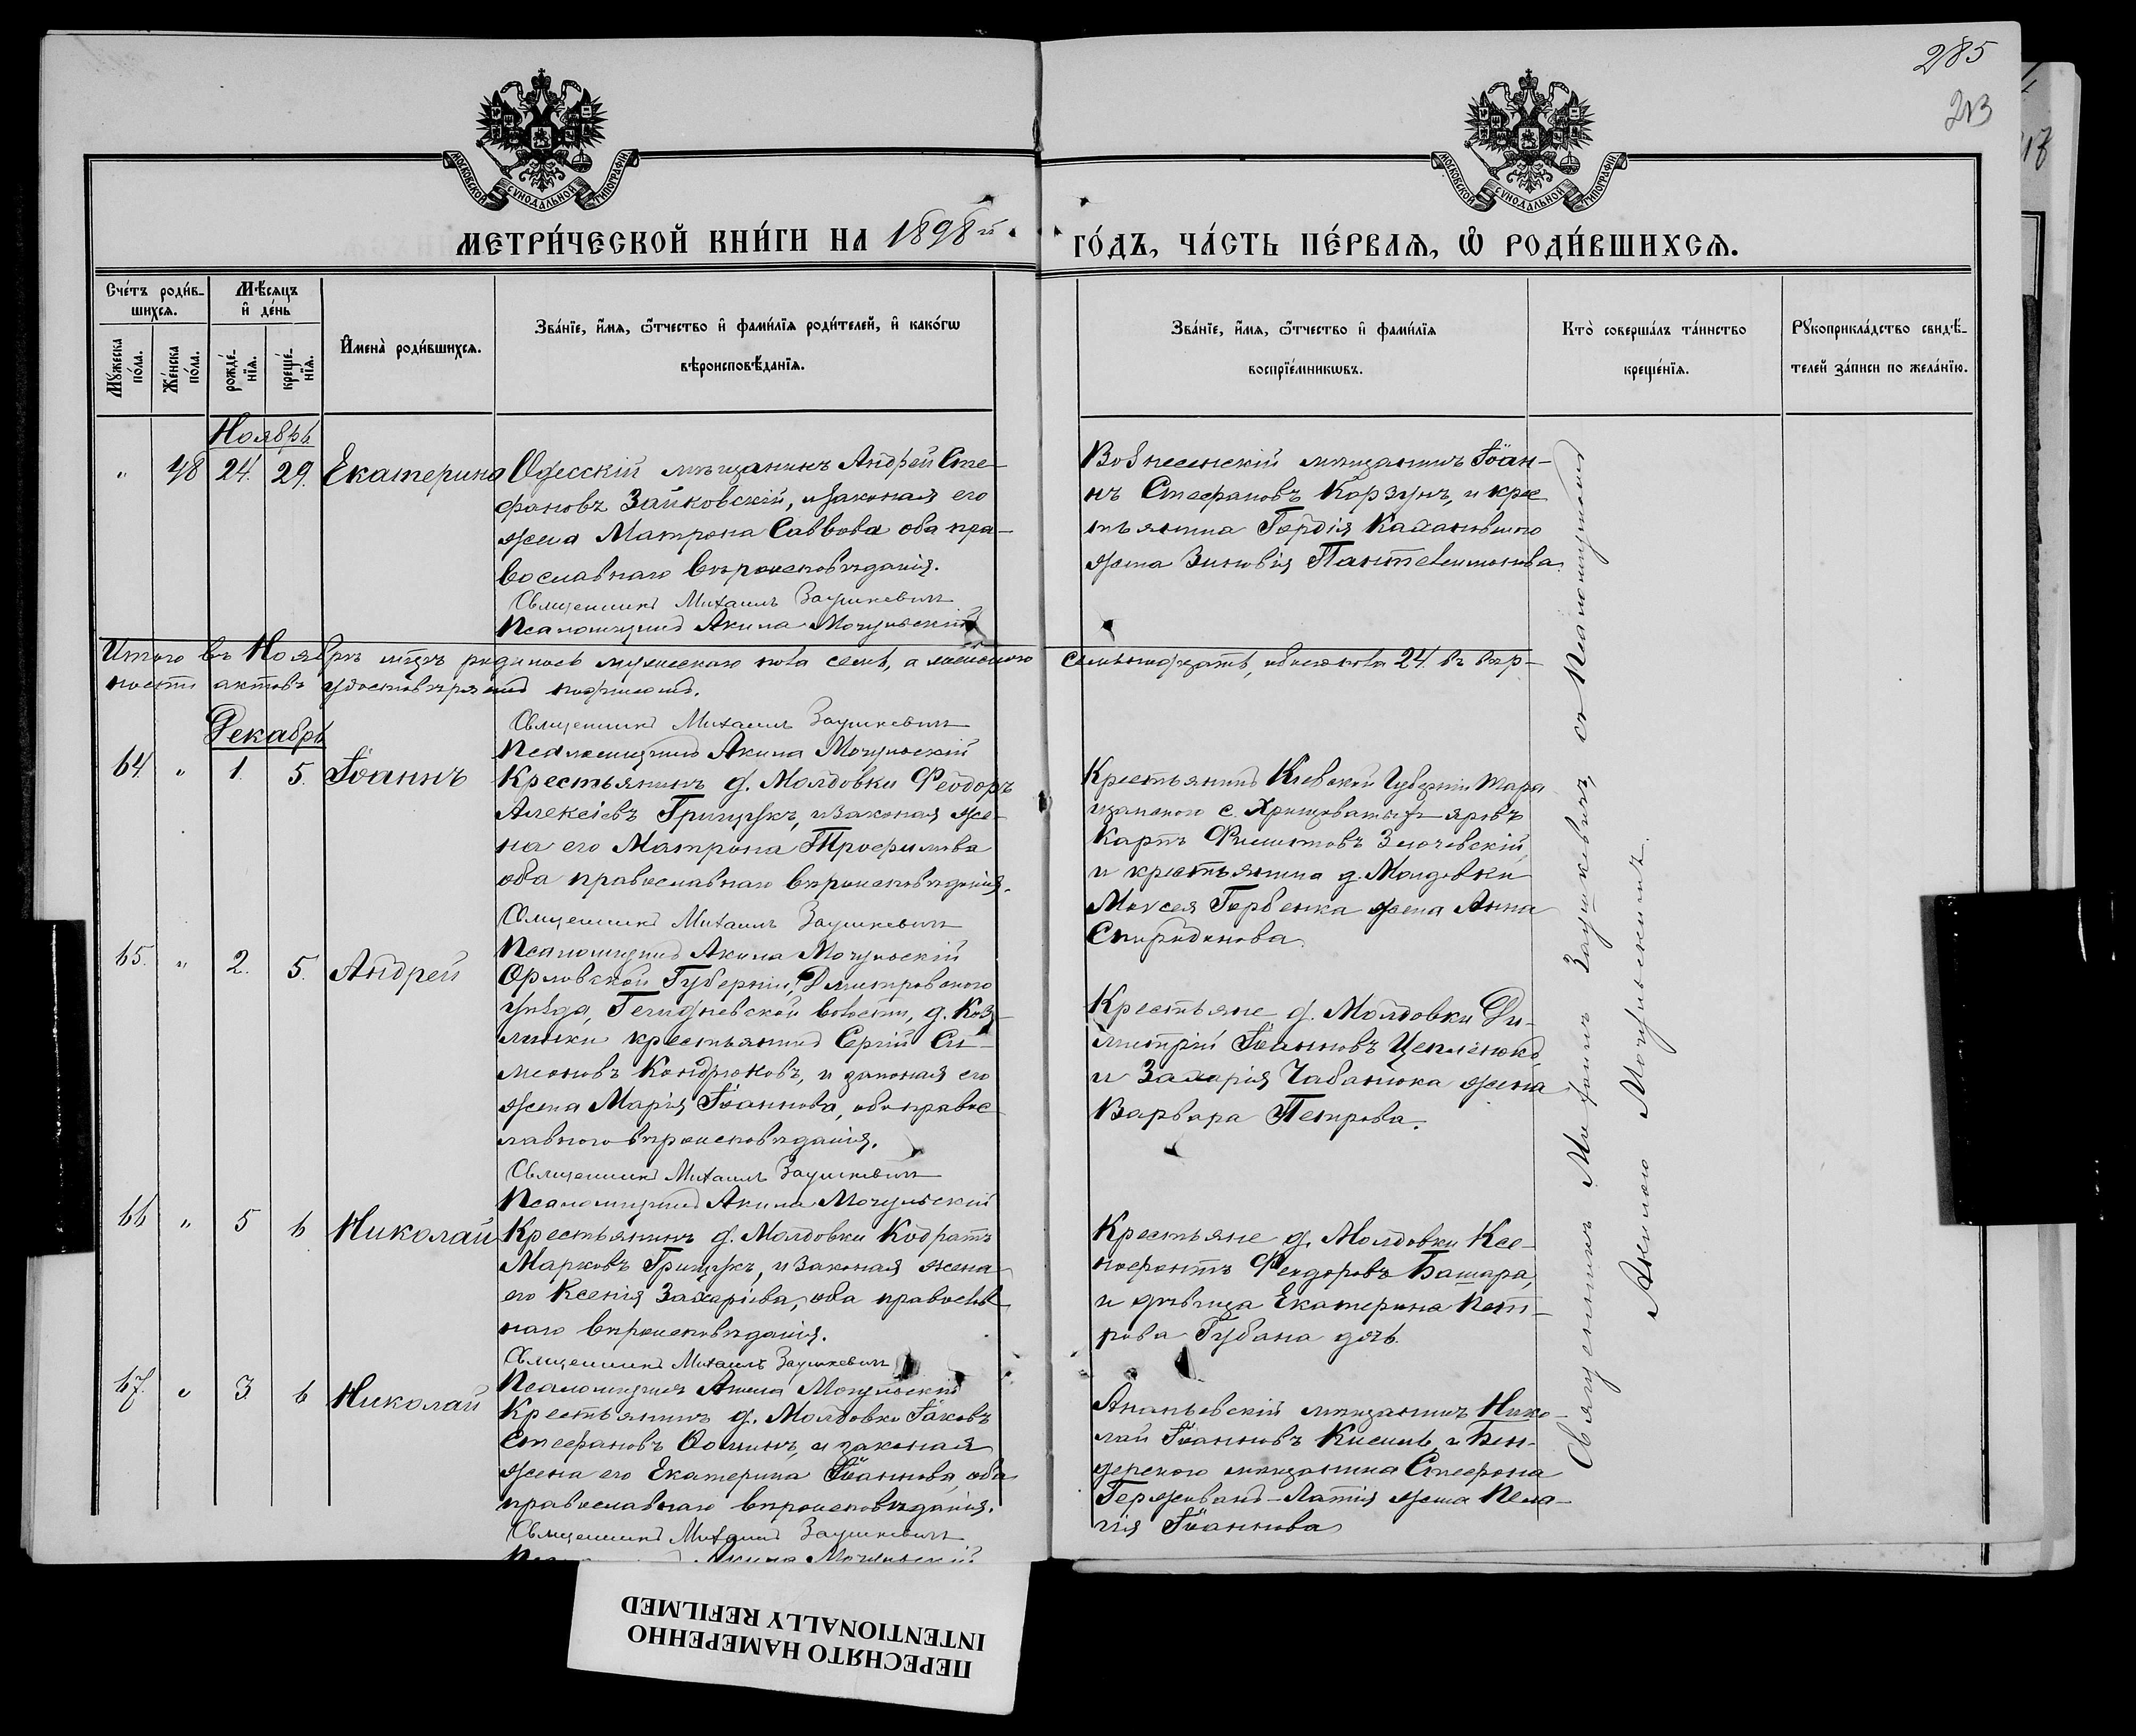 285
213
МОСКОВСКОЙ СѴНОДАЛЬНОЙ ТИПОГРАФІИ
МОСКОВСКОЙ СѴНОДАЛЬНОЙ ТИПОГРАФІИ
МЕТРИ́ЧЕСКОЙ КНИ́ГИ НА 1898 й
ГО́ДЪ, ЧА́СТЬ ПЕ́РВАѦ, Ѡ҆ РОДИ́ВШИХСѦ.
Сче́тъ роди́в-
шихсѧ.
Мꙋ́жеска по́ла.
Же́нска по́ла.
Мѣ́сѧцъ
и҆ де́нь
рожде́-нїѧ.
креще́-нїѧ.
И҆мена̀ роди́вшихсѧ.
Зва́нїе, и҆́мѧ, ѻ҆́тчество и҆ фами́лїѧ роди́телей, и҆ како́гѡ
вѣроисповѣ́данїѧ.
Зва́нїе, и҆́мѧ, ѻ҆́тчество и҆ фами́лїѧ
воспрїе́мникѡвъ.
Кто̀ соверша́лъ та́инство
креще́нїѧ.
Рꙋкоприкла́дство свидѣ́-
телей за́писи по жела́нїю.
Ноябрь
" 48 24. 29. Екатерина
Одесскій мѣщанинъ Андрей Сте-
фановъ Зайковскій, и законая его
жена Матрона Саввова оба пра-
вославнаго вѣроисповѣданія.
Священникъ Михаилъ Заушкевичъ
Псаломщикъ Акила Мочульскій
Вознесенскій мѣщанинъ Іоан-
нъ Стефановъ Корзунъ, и крес
тьянина Гордія
жена Зиновія Пантелеимонова.
Итого въ Ноябрѣ мѣцѣ родилось мужескаго пола семь, а женскаго семьнадцать, обоего пола 24. въ вѣр-
ности актовъ удостовѣряемъ подписомъ.
Священникъ Михаилъ Заушкевичъ
Псаломщикъ Акила Мочульскій
Декабрь
64. " 1. 5. Іоаннъ
Крестьянинъ д. Молдовки Ѳеодоръ
Алексіевъ Грищукъ, и законая же-
на его Матрона Трофимова
оба православнаго вѣроисповѣданія.
Священникъ Михаилъ Заушкевичъ
Псаломщикъ Акила Мочульскій
Крестьянинъ Кіевской Губерніи Тара
щанского с. Хрищоватыхъ яровъ
Карпъ Филиповъ Злочевскій,
и крестьянина д. Молдовки
Моисея Горбенка жена Анна
Спиридонова.
65. " 2. 5. Андрей
Орловской Губерніи, Дмитровского
уѣзда, волости, д. Коз-
линки крестьянинъ Сергій Си-
меоновъ Кондрюковъ, и законая его
жена Марія Іоаннова, оба правос-
лавного вѣроисповѣданія.
Священникъ Михаилъ Заушкевичъ
Псаломщикъ Акила Мочульскій
Крестьяне д. Молдовки Ди-
митрій Іоанновъ Цепленюкъ,
и Захарія Чабанюка жена
Варвара Петрова.
66 " 5 6 Николай
Крестьянинъ д. Молдовки Кодратъ
Марковъ Грищукъ, и законая жена
его Ксенія Захаріева, оба православ
наго вѣроисповѣданія.
Священникъ Михаилъ Заушкевичъ
Псаломщикъ Акила Мочульскій
Крестьяне д. Молдовки Ксе-
нофонтъ Ѳеодоровъ Башара,
и дѣвица Екатерина Пет-
рова Губана дочь.
67. " 3. 6 Николай
Крестьянинъ д. Молдовки Іаковъ
Стефановъ Ѳоминъ, и законая
жена его Екатерина Іоаннова, оба
православнаго вѣроисповѣданія.
Священникъ Михаилъ Заушкевичъ
Акила Мочульскій
Ананьевскій мѣщанинъ Нико-
лай Іоанновъ Кисиль, и Бен-
дерского мѣщанина Стефана
жена Пела-
гія Іоаннова
Священникъ Михаилъ Заушкевичъ, съ Псаломщикомъ
Акилою Мочульскимъ.
ПЕРЕСНЯТО НАМЕРЕННО
INTENTIONALLY REFILMED